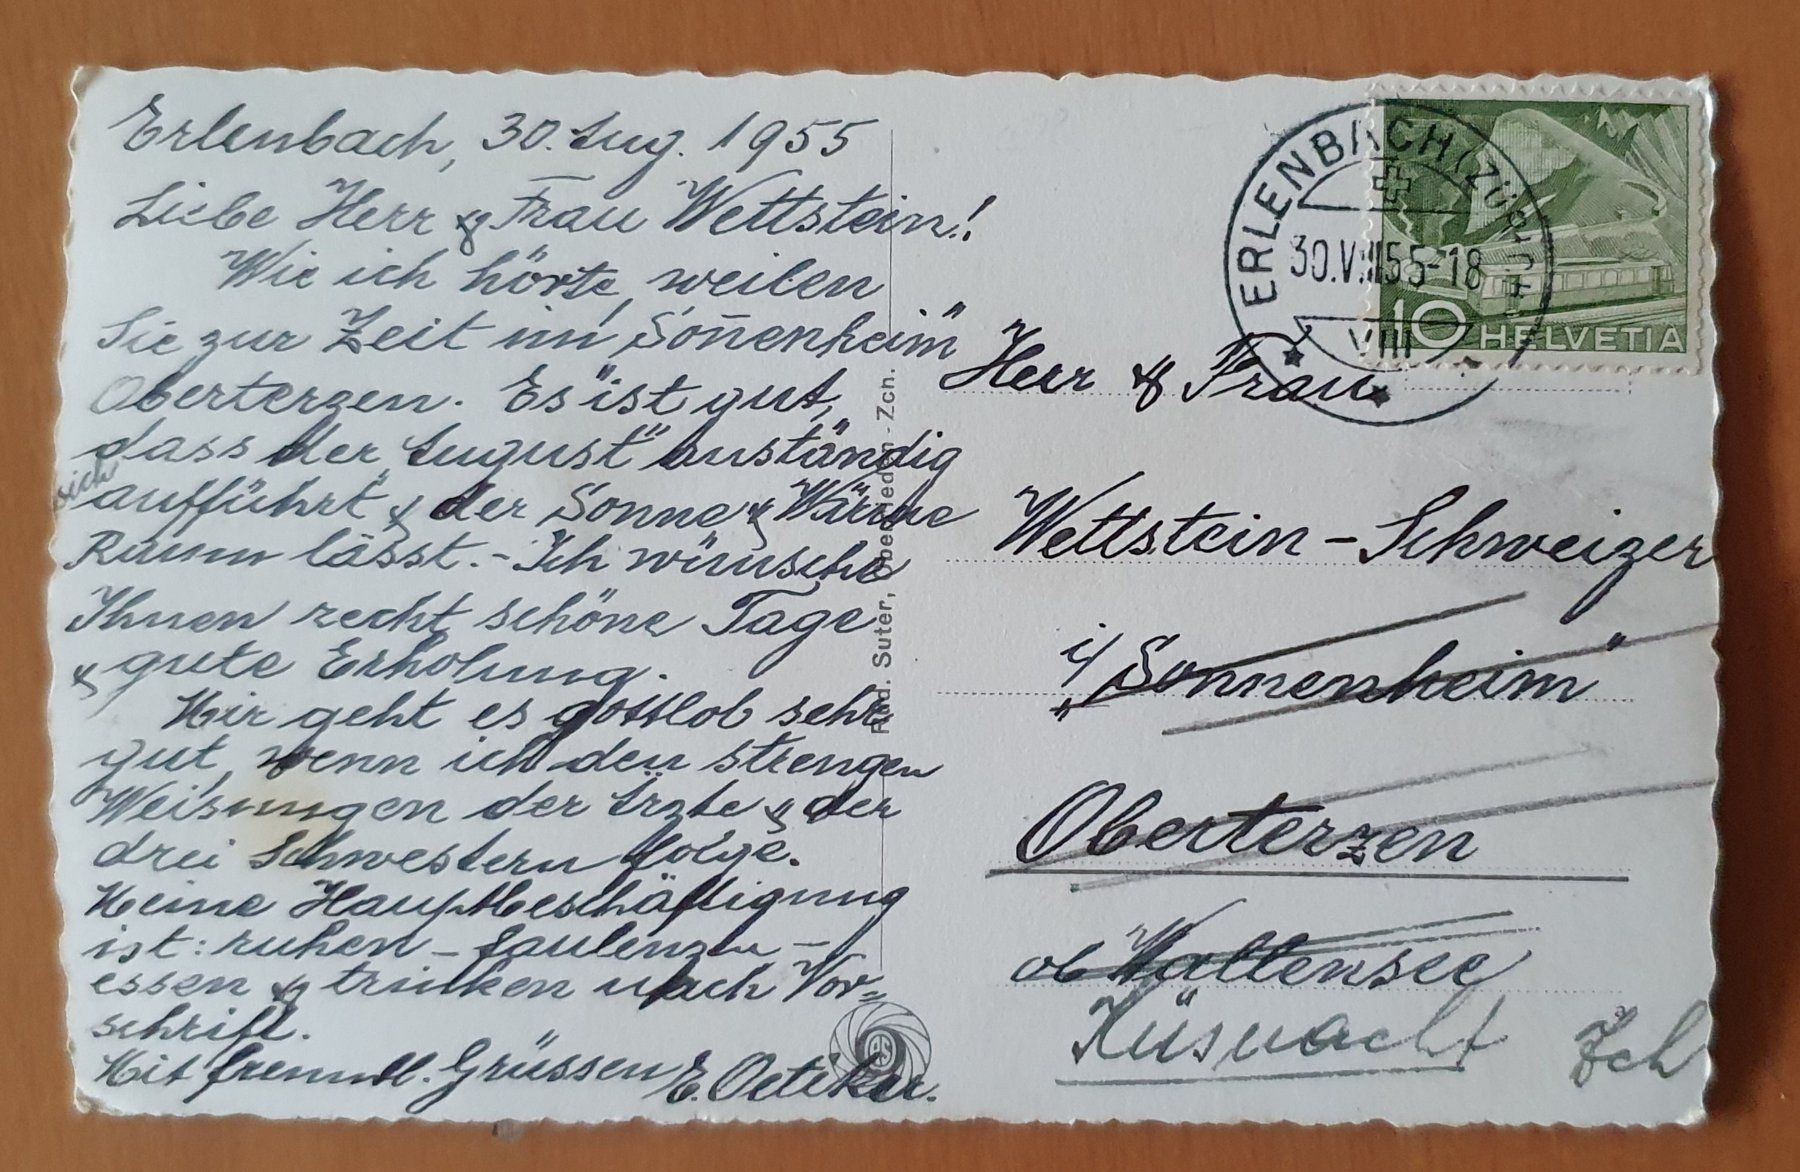 Erlenbach, 30. Aug. 1955
Liebe Herr & Frau Wettstein!
Wie ich hörte, weilen
Sie zur Zeit im „Soñenheim"
Oberterzen. Es ist gut,
dass der „August" anständig
sich
aufführt & der Sonne & Wärme
Raum lässt. - Ich wünsche
Ihnen recht schöne Tage
& gute Erholung.
Mir geht es gottlob sehr
gut, wenn ich den strengen
Weisungen der Ärzte & der
drei Schwestern folge.
Meine Hauptbeschäftigung
ist: ruhen - faulenzen -
essen & trinken nach Vor-
schrift.
Mit freundl. Grüssen E. Oetiker.
Rud. Suter, Oberrieden-Zch.
ERLENBACH (ZÜRICH)
30.VIII.55-18
VIII
10 HELVETIA
Herr & Frau
Wettstein - Schweizer
i/ „Sonnenheim"
Oberterzen
ob Wallensee
Küsnacht Zch